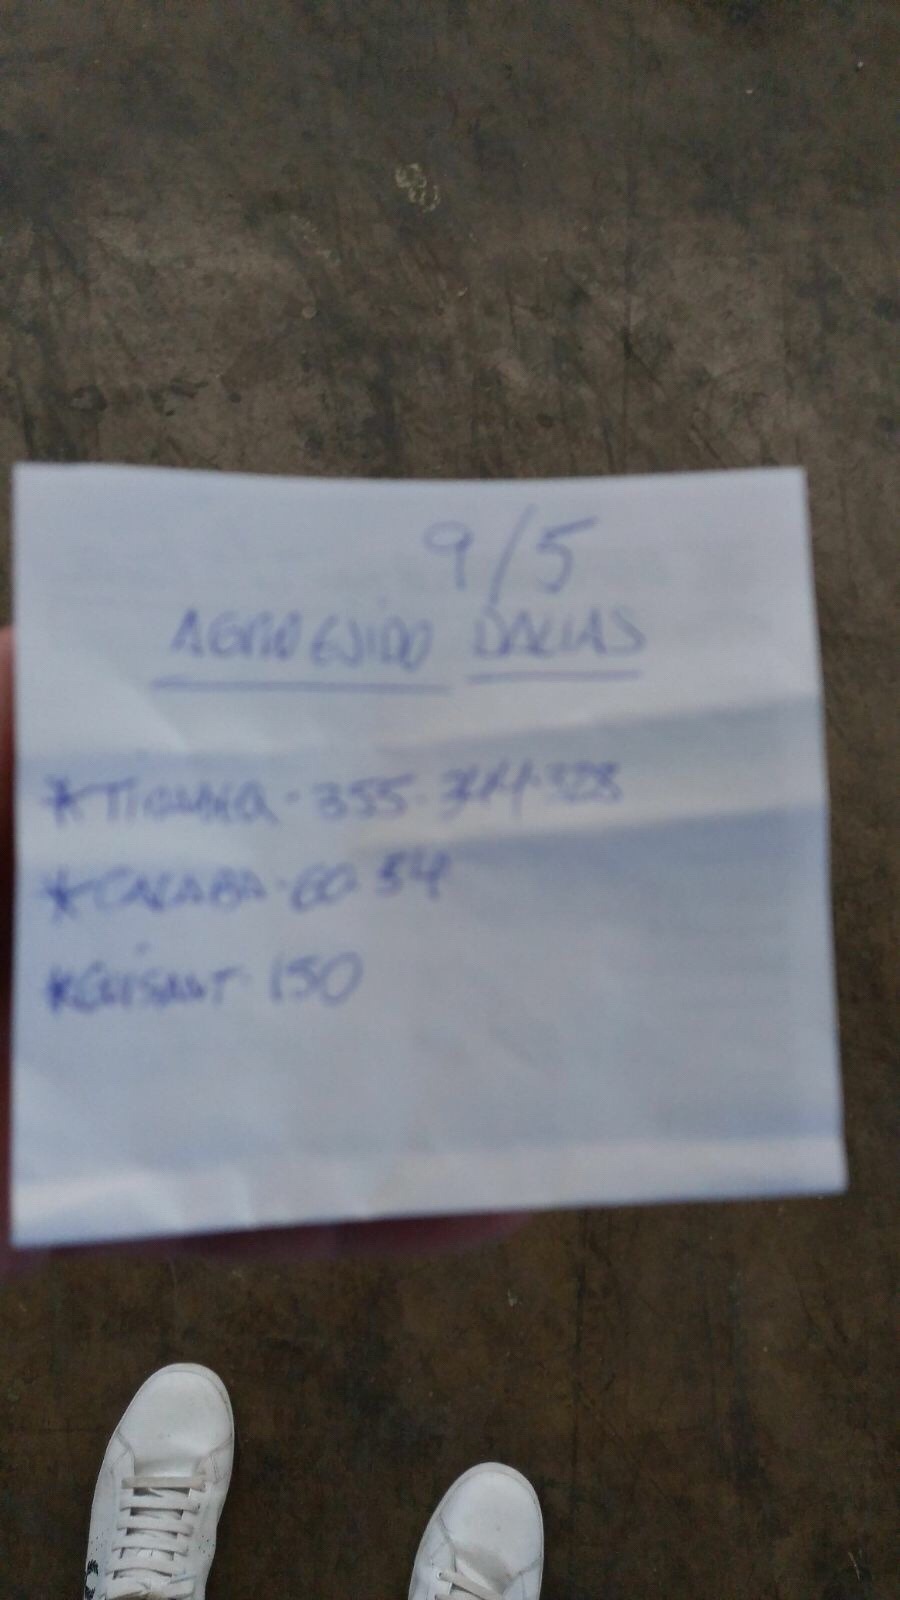 9/5
AGROEJIDO DALIAS
* 355-344-328
* CALABA-60 54
* GUISANT-150